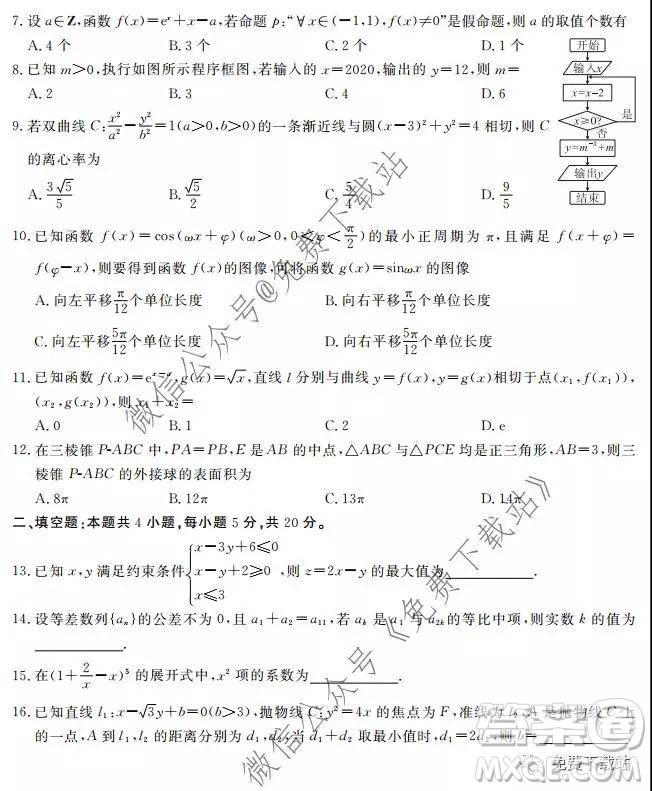 7. 设a∈Z,函数f(x)=eˣ+x−a,若命题p:“∀x∈(−1,1),f(x)≠0”是假命题,则a的取值个数有
A. 4个 B. 3个 C. 2个 D. 1个
8. 已知m>0,执行如图所示程序框图,若输入的x=2020,输出的y=12,则m=
A. 2 B. 3 C. 4 D. 6
开始
输入x
x=x−2
x≥0?
是
否
y=m⁻ˣ+m
输出y
结束
9. 若双曲线C:x²/a²−y²/b²=1(a>0,b>0)的一条渐近线与圆(x−3)²+y²=4相切,则C
的离心率为
A. 3√5/5 B. √5/2 C. 5/4 D. 9/5
10. 已知函数f(x)=cos(ωx+φ)(ω>0,0≤φ<π/2)的最小正周期为π,且满足f(x+φ)=
f(φ−x),则要得到函数f(x)的图像,可将函数g(x)=sinωx的图像
A. 向左平移π/12个单位长度 B. 向右平移π/12个单位长度
C. 向左平移5π/12个单位长度 D. 向右平移5π/12个单位长度
11. 已知函数 g(x)=√x,直线l分别与曲线y=f(x),y=g(x)相切于点(x₁,f(x₁)),
(x₂,g(x₂)),则x₁+x₂=
A. 0 B. 1 C. 2 D. e
12. 在三棱锥P-ABC中,PA=PB,E是AB的中点,△ABC与△PCE均是正三角形,AB=3,则三
棱锥P-ABC的外接球的表面积为
A. 8π B. 12π C. 13π D. 14π
二、填空题:本题共4小题,每小题5分,共20分。
13. 已知x,y满足约束条件{x−3y+6≤0 x−y+2≥0 x≤3,则z=2x−y的最大值为________.
14. 设等差数列{aₙ}的公差不为0,且a₁+a₂=a₁₁,若aₖ是a₁与a₂ₖ的等比中项,则实数k的值为
________.
15. 在(1+2/x−x)⁵的展开式中,x²项的系数为________.
16. 已知直线l₁:x−√3y+b=0(b>3),抛物线C:y²=4x的焦点为F,准线为l₂,A是抛物线C上
的一点,A到l₁,l₂的距离分别为d₁,d₂,当d₁+d₂取最小值时,d₁=2d₂,则b=________.
微信公众号@免费下载站
微信公众号《免费下载站》
答案圈
MXQE.COM
免费下载站